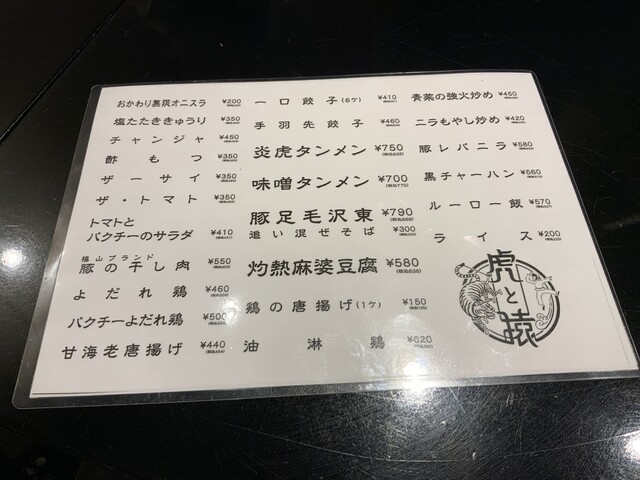 おかわり無限オニスラ ¥200
塩たたききゅうり ¥350
チャンジャ ¥450
酢もつ ¥350
ザーサイ ¥350
ザ・トマト ¥350
トマトと
パクチーのサラダ ¥410
福山ブランド
豚の干し肉 ¥550
よだれ鶏 ¥460
パクチーよだれ鶏 ¥500
甘海老唐揚げ ¥440
一口餃子(6ケ) ¥410
手羽先餃子 ¥460
炎虎タンメン ¥750
味噌タンメン ¥700 (税込770)
豚足毛沢東 ¥790
追い混ぜそば ¥300
灼熱麻婆豆腐 ¥580 (税込638)
鶏の唐揚げ(1ケ) ¥150
油淋鶏 ¥620
青菜の強火炒め ¥450
ニラもやし炒め ¥420
豚レバニラ ¥580
黒チャーハン ¥560
ルーロー飯 ¥570
ライス ¥200
虎と猿